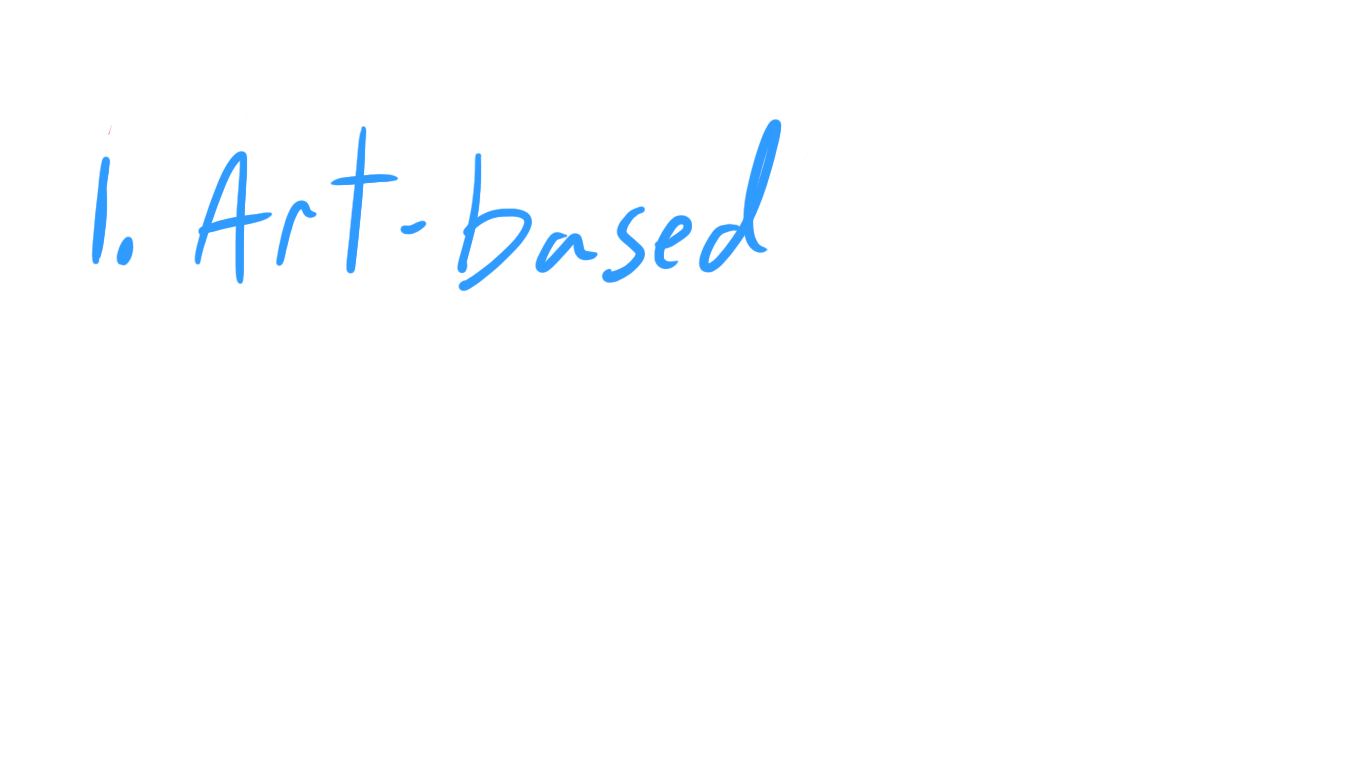 1. Art-based